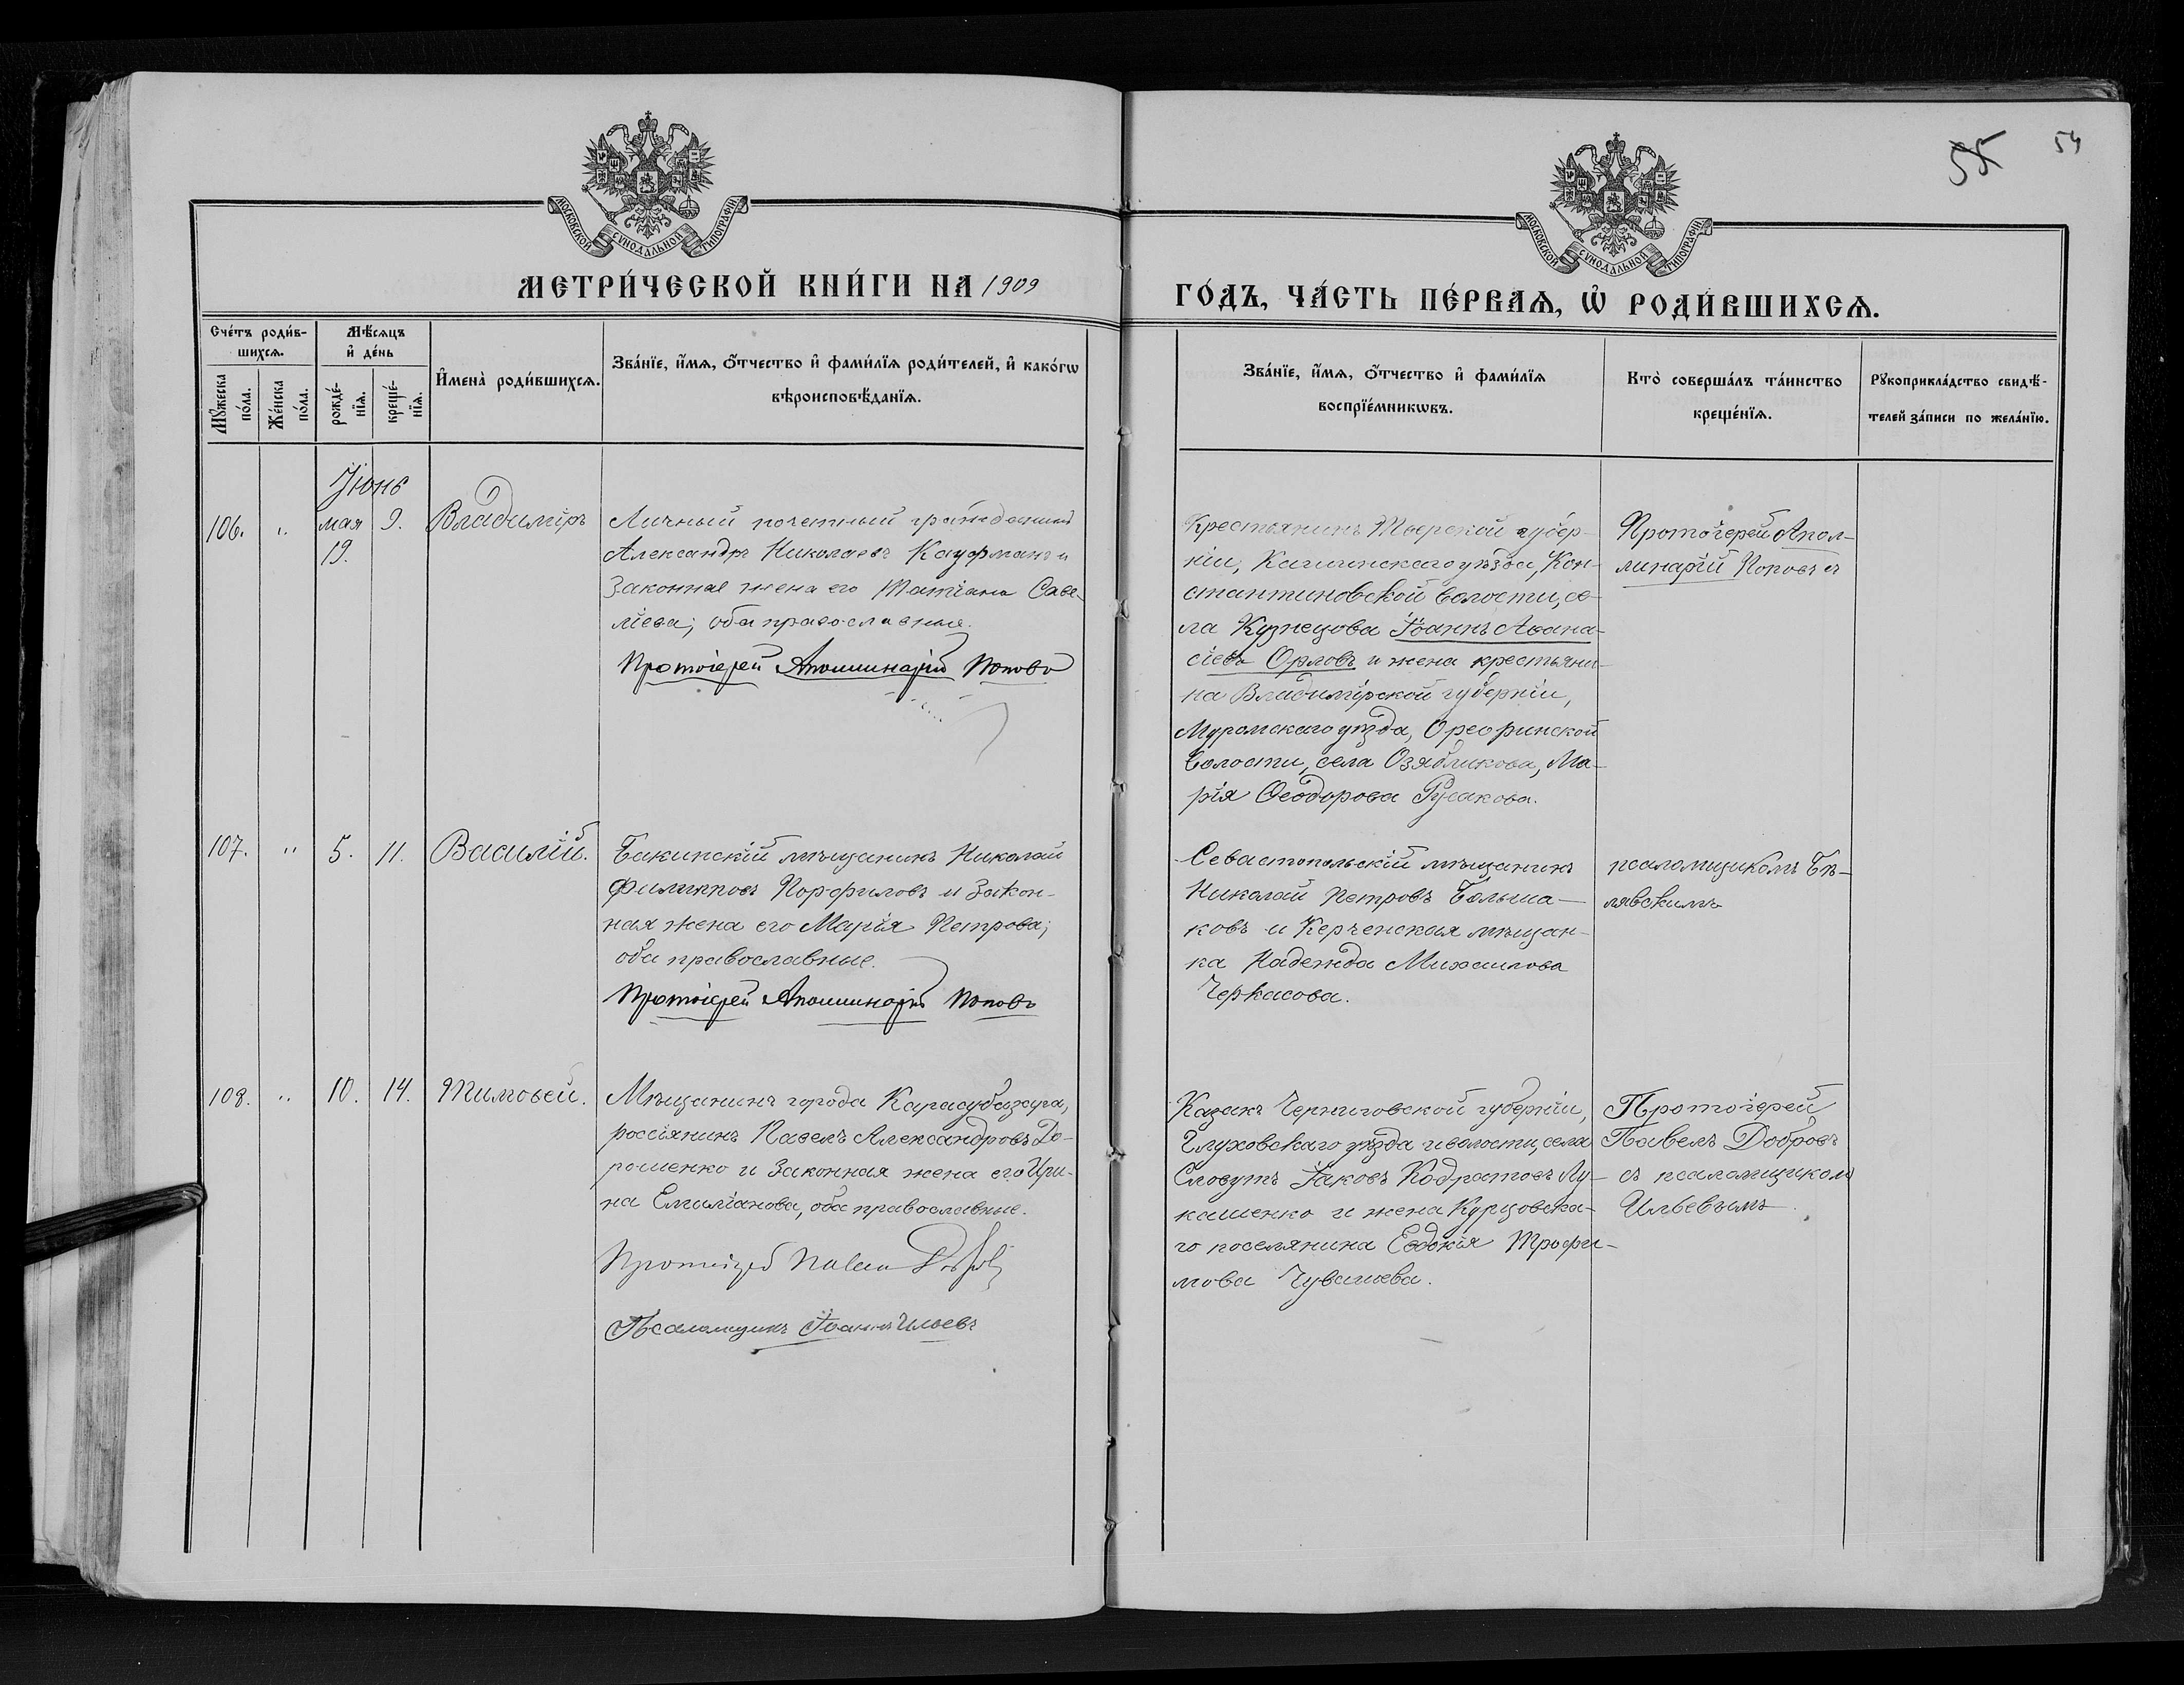 55 54
МОСКОВСКОЙ СѴНОДАЛЬНОЙ ТИПОГРАФІИ
МОСКОВСКОЙ СѴНОДАЛЬНОЙ ТИПОГРАФІИ
МЕТРИ́ЧЕСКОЙ КНИ́ГИ НА 1909
ГО́ДЪ, ЧА́СТЬ ПЕ́РВАѦ, Ѡ҆ РОДИ́ВШИХСѦ.
Сче́тъ роди́в-
шихсѧ.
Мꙋ́жеска
по́ла.
Же́нска
по́ла.
Мѣ́сѧцъ
и҆ де́нь
рожде́-
нїѧ.
креще́-
нїѧ.
И҆мена̀ роди́вшихсѧ.
Зва́нїе, и҆́мѧ, ѻ҆́тчество и҆ фами́лїѧ роди́телей, и҆ како́гѡ
вѣроисповѣ́данїѧ.
Зва́нїе, и҆́мѧ, ѻ҆́тчество и҆ фами́лїѧ
воспрїе́мникѡвъ.
Кто̀ соверша́лъ та́инство
креще́нїѧ.
Рꙋкоприкла́дство свидѣ́-
телей за́писи по жела́нїю.
Іюнь
106. " мая 9. Владиміръ
19.
Личный почетный гражданинъ
Александръ Николаевъ Кауфманъ и
законная жена его Татіана Саве-
ліева; оба православные.
Протоіерей Аполлинарій Поповъ
Крестьянинъ Тверской губер-
ніи, Калязинскаго уѣзда, Кон-
стантиновской волости, се-
ла Кузнецова Іоаннъ Аѳана-
сіевъ Орловъ и жена крестьяни-
на Владимірской губерніи,
Муромскаго уѣзда,
волости, села Озябликова, Ма-
рія Ѳеодорова Русакова.
Протоіерей Апол-
линарій Поповъ съ
107. " 5. 11. Василій.
Бакинскій мѣщанинъ Николай
Филипповъ Порфиловъ и закон-
ная жена его Марія Петрова;
оба православные.
Протоіерей Аполлинарій Поповъ
Севастопольскій мѣщанинъ
Николай Петровъ Больша-
ковъ и Керченская мѣщан-
ка Надежда Михаилова
Черкасова.
псаломщикомъ Бѣ-
лявскимъ
108. " 10. 14. Тимоѳей.
Мѣщанинъ города Карасубазара,
россіянинъ Павелъ Александровъ До-
рошенко и законная жена его Ири-
на Емиліанова, оба православные.
Протоіерей Павелъ Добровъ
Псаломщикъ Іоаннъ Ильевъ
Казакъ Черниговской губерніи,
Глуховскаго уѣзда и волости, села
Словутъ Іаковъ Кодратовъ Лу-
кашенко и жена Курцовска-
го поселянина Евдокія Трофи-
мова Чувашева.
Протоіерей
Павелъ Добровъ
съ псаломщикомъ
Ильевымъ.